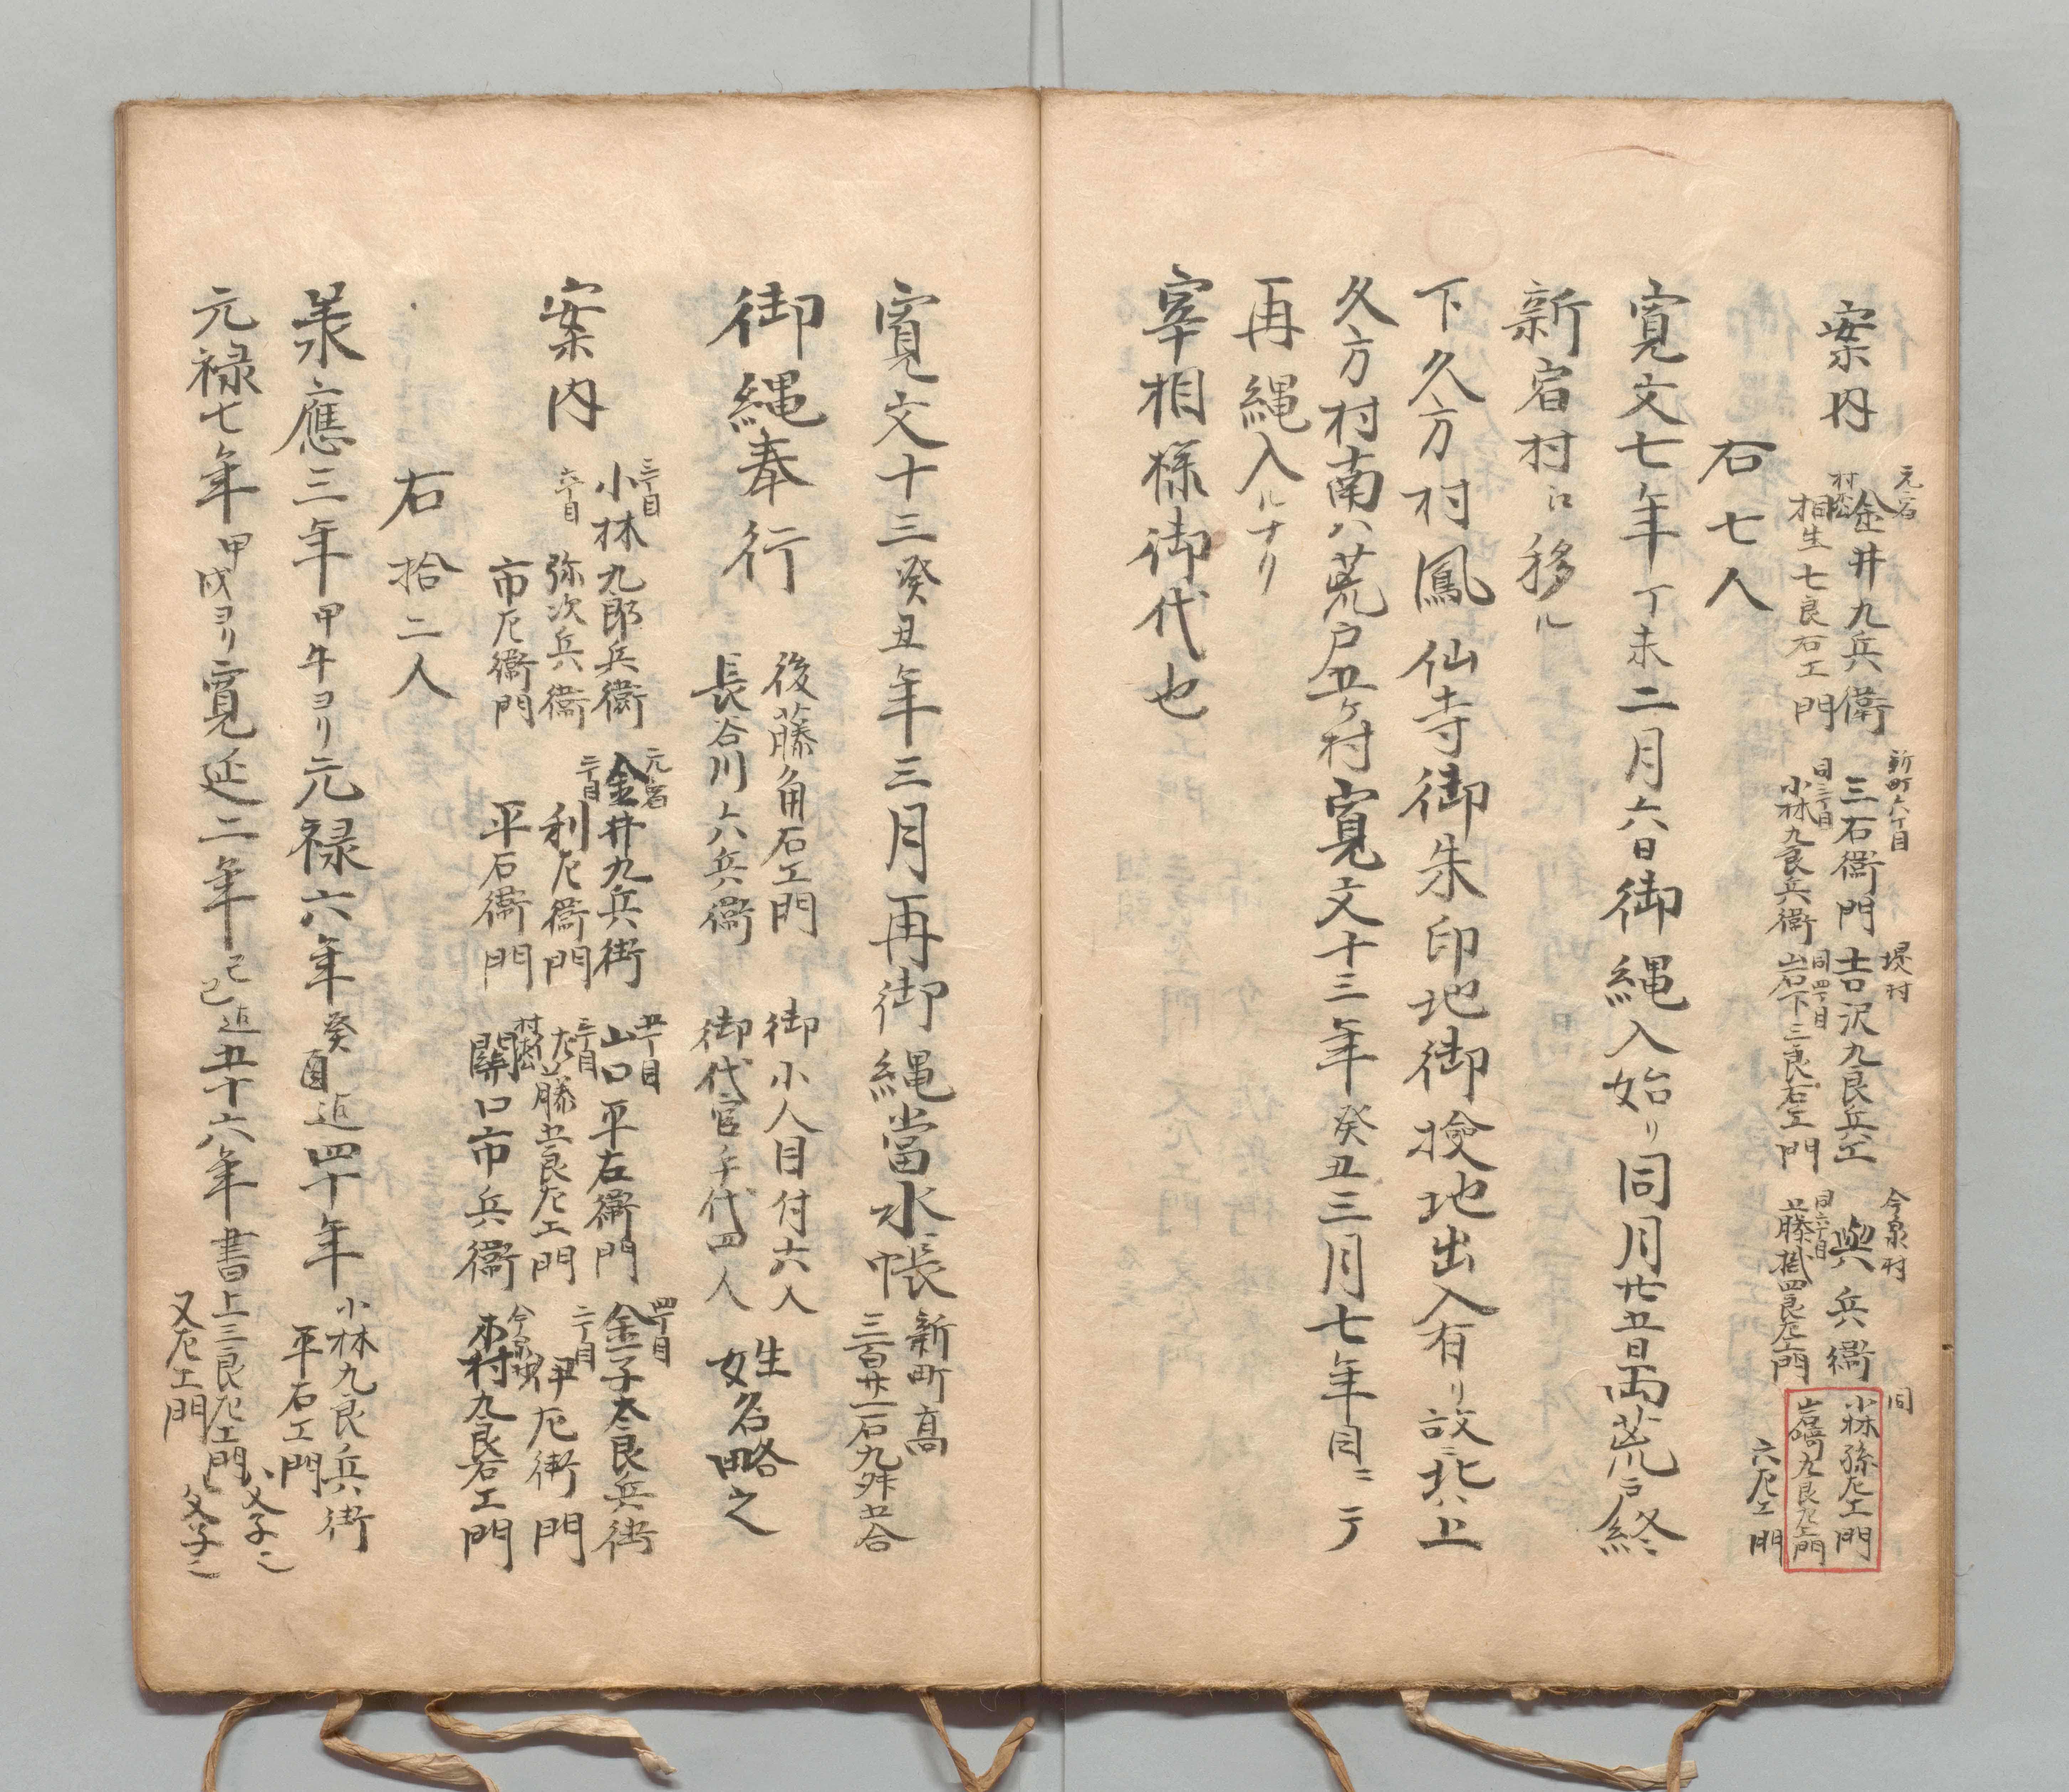 案内
元宿
金井九兵衛
村松
相生七良右エ門
新町六丁目
三右衛門
同三丁目
小林九良兵衛
堤村
吉沢九良兵エ
同四丁目
岩下三良右エ門
今泉村
與兵衛
同六丁目
藤掛四良左エ門
同
小林孫左エ門
岩崎九良左エ門
六左エ門
右七人
寛文七年丁未二月六日御縄入始リ同月廿五日両荒戸終
新宿村江移ル
下久方村鳳仙寺御朱印地御検地出入有リ故ニ北ハ上
久方村南ハ荒戸五ヶ村寛文十三年癸丑三月七年目ニテ
再縄入ルナリ
宰相様御代也
寛文十三癸丑年三月再御縄當水帳
新町高
三百廿一石九舛五合
御縄奉行
後藤角右エ門
長谷川六兵衛
御小人目付六人
御代官手代四人
姓名略之
案内
三丁目
小林九郎兵衛
六丁目
弥次兵衛
市左衛門
元宿
金井九兵衛
三丁目
利左衛門
平右衛門
五丁目
山口平左衛門
三丁目
藤五良左エ門
村松
關口市兵衛
四丁目
金子太良兵衛
二丁目
伊左衛門
今泉
木村九良右エ門
右拾二人
羕應三年甲午ヨリ元禄六年癸酉迠四十年
小林九良兵衛
平右エ門
元禄七年甲戌ヨリ寛延二年己巳迠五十六年書上
三良左エ門
父子ニ
又左エ門
父子ニ